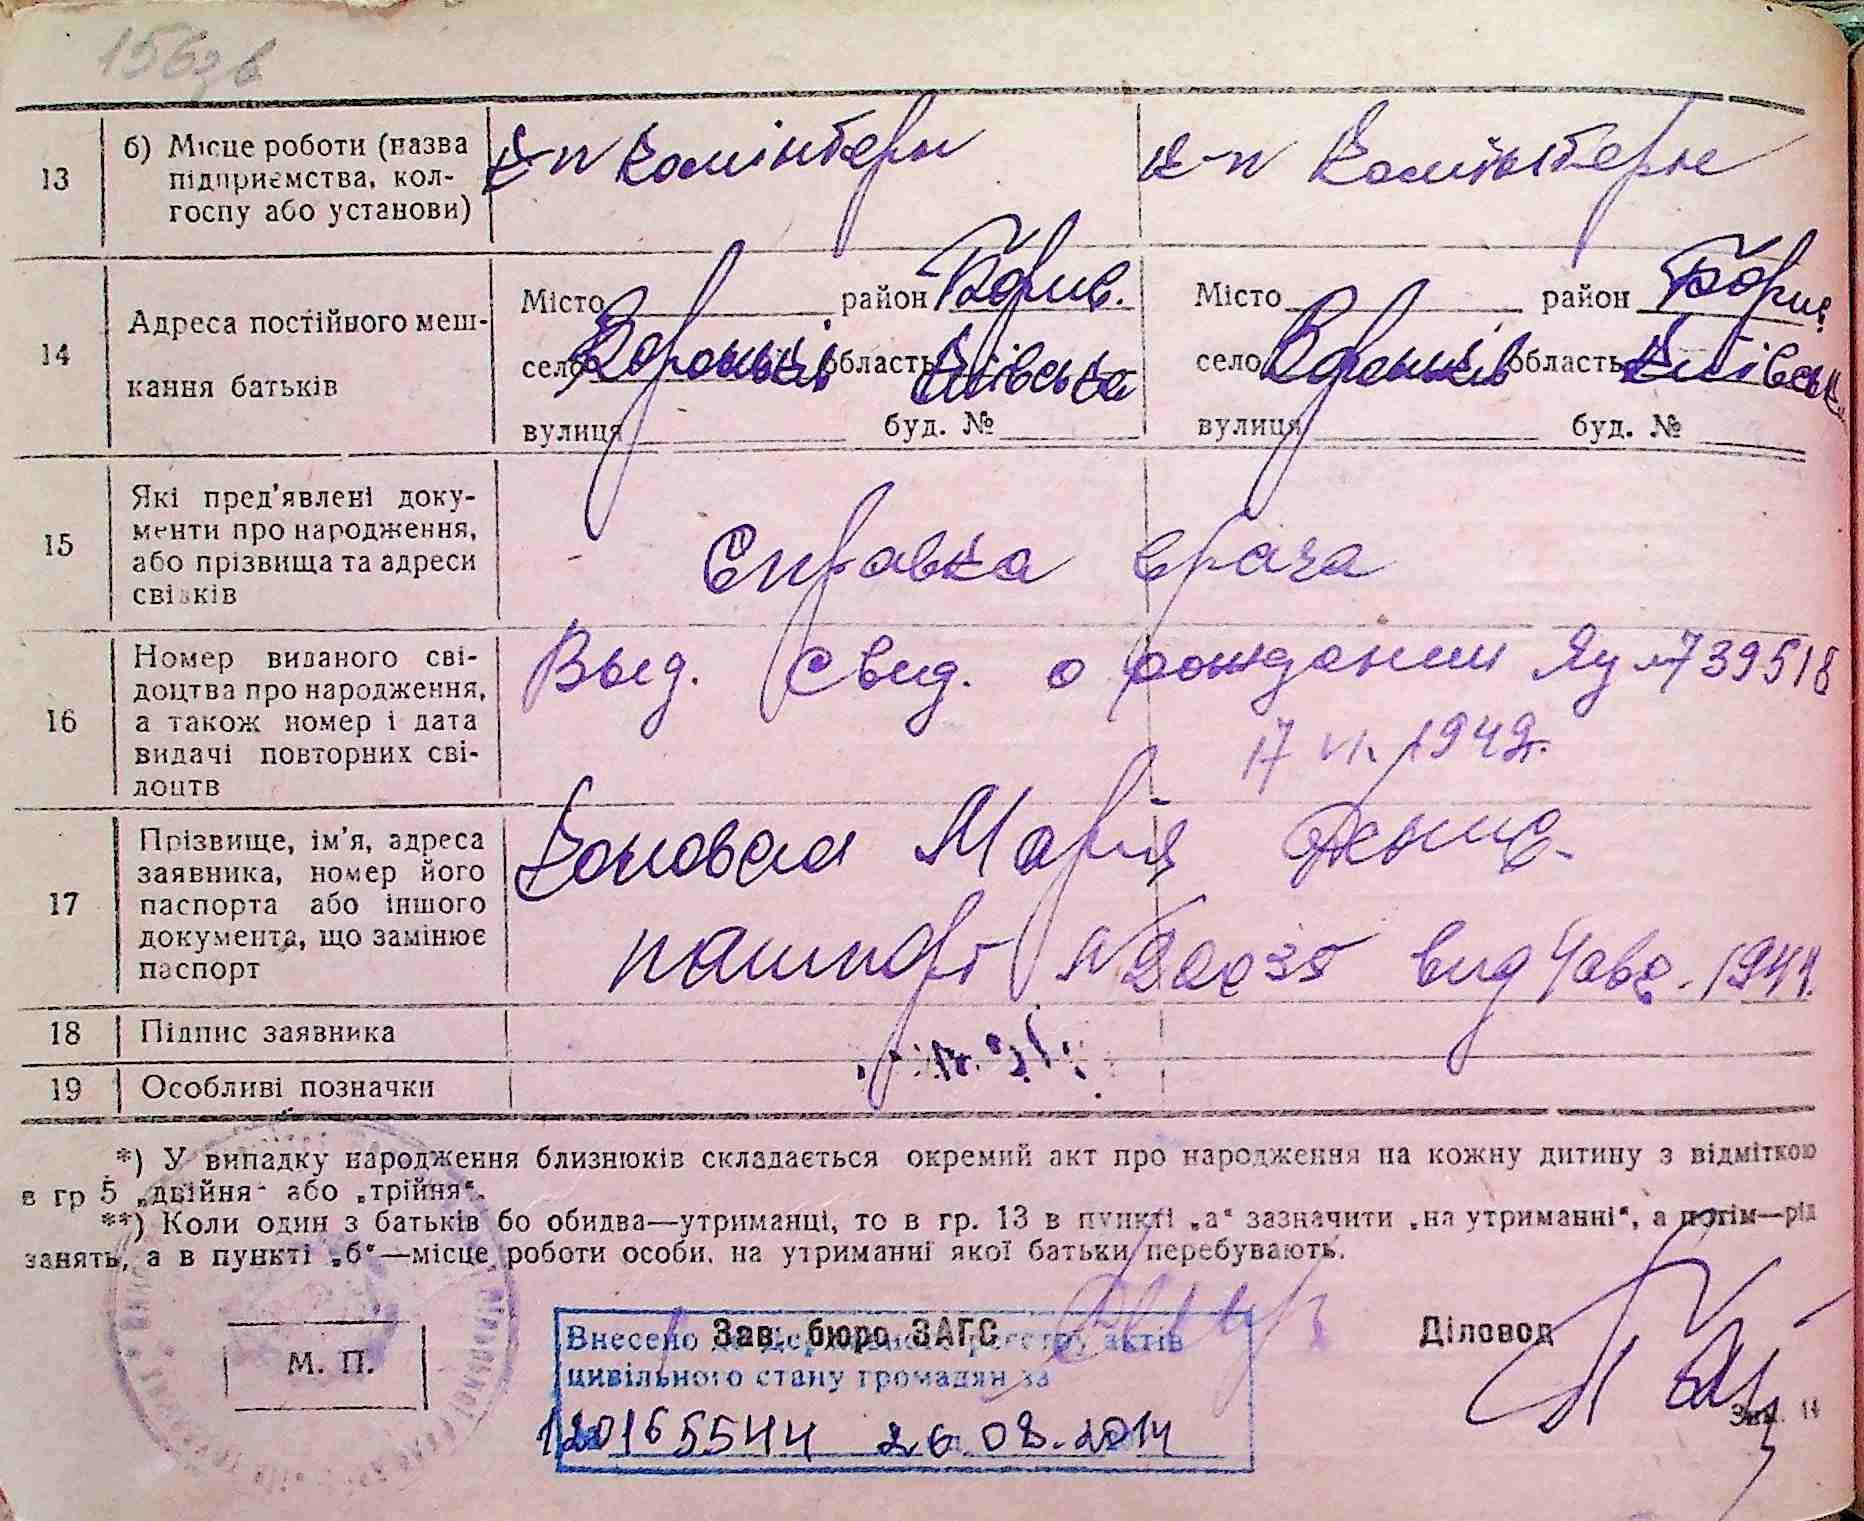 156зв
13 б) Місце роботи (назва підприємства, колгоспу або установи)
к-п Комінтерн
к-п Комінтерн
14 Адреса постійного мешкання батьків
Місто район Борисп.
село Вороньків область Київська
вулиця буд. №
Місто район Борисп.
село Вороньків область Київськ.
вулиця буд. №
15 Які пред'явлені документи про народження, або прізвища та адреси свідків
Справка врача
16 Номер виданого свідоцтва про народження, а також номер і дата видачі повторних свідоцтв
Выд. свид. о рождении Яу №739518
17 VI. 1949г.
17 Прізвище, ім'я, адреса заявника, номер його паспорта або іншого документа, що замінює паспорт
Марія
пашпорт № вид 4 авг. 1944.
18 Підпис заявника
19 Особливі позначки
*) У випадку народження близнюків складається окремий акт про народження на кожну дитину з відміткою
в гр 5 „двійня" або „трійня".
**) Коли один з батьків бо обидва—утриманці, то в гр. 13 в пункті „а" зазначити „на утриманні", а потім—рід
занять, а в пункті „б"—місце роботи особи, на утриманні якої батьки перебувають.
М. П.
Зав. бюро ЗАГС
Діловод
Внесено до Державного реєстру актів
цивільного стану громадян за
№ 120165544 26.08.2014